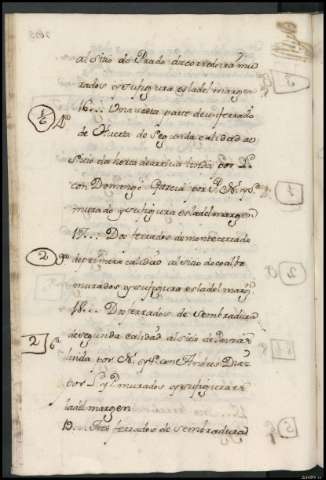 al sitio do Prado da corredoira mu
rados y su figura es la del margen
16... Una sexta parte de un ferrado
de Huerta de segunda calidad al
sitio da horta de arriva linda por L.
con Domingo Garcia por P. N. y S.
murado y su figura es la del margen
17... Dos ferrados de monte cerrado
de primera calidad al sitio do
murados y su figura es la del marg.
18... Dos ferrados de sembradura
de segunda calidad al sitio de
linda por N. y P. con Andres Diaz
por L. y S. murados y su figura es
la del margen
19... Tres ferrados de sembradura
1/6
2
2